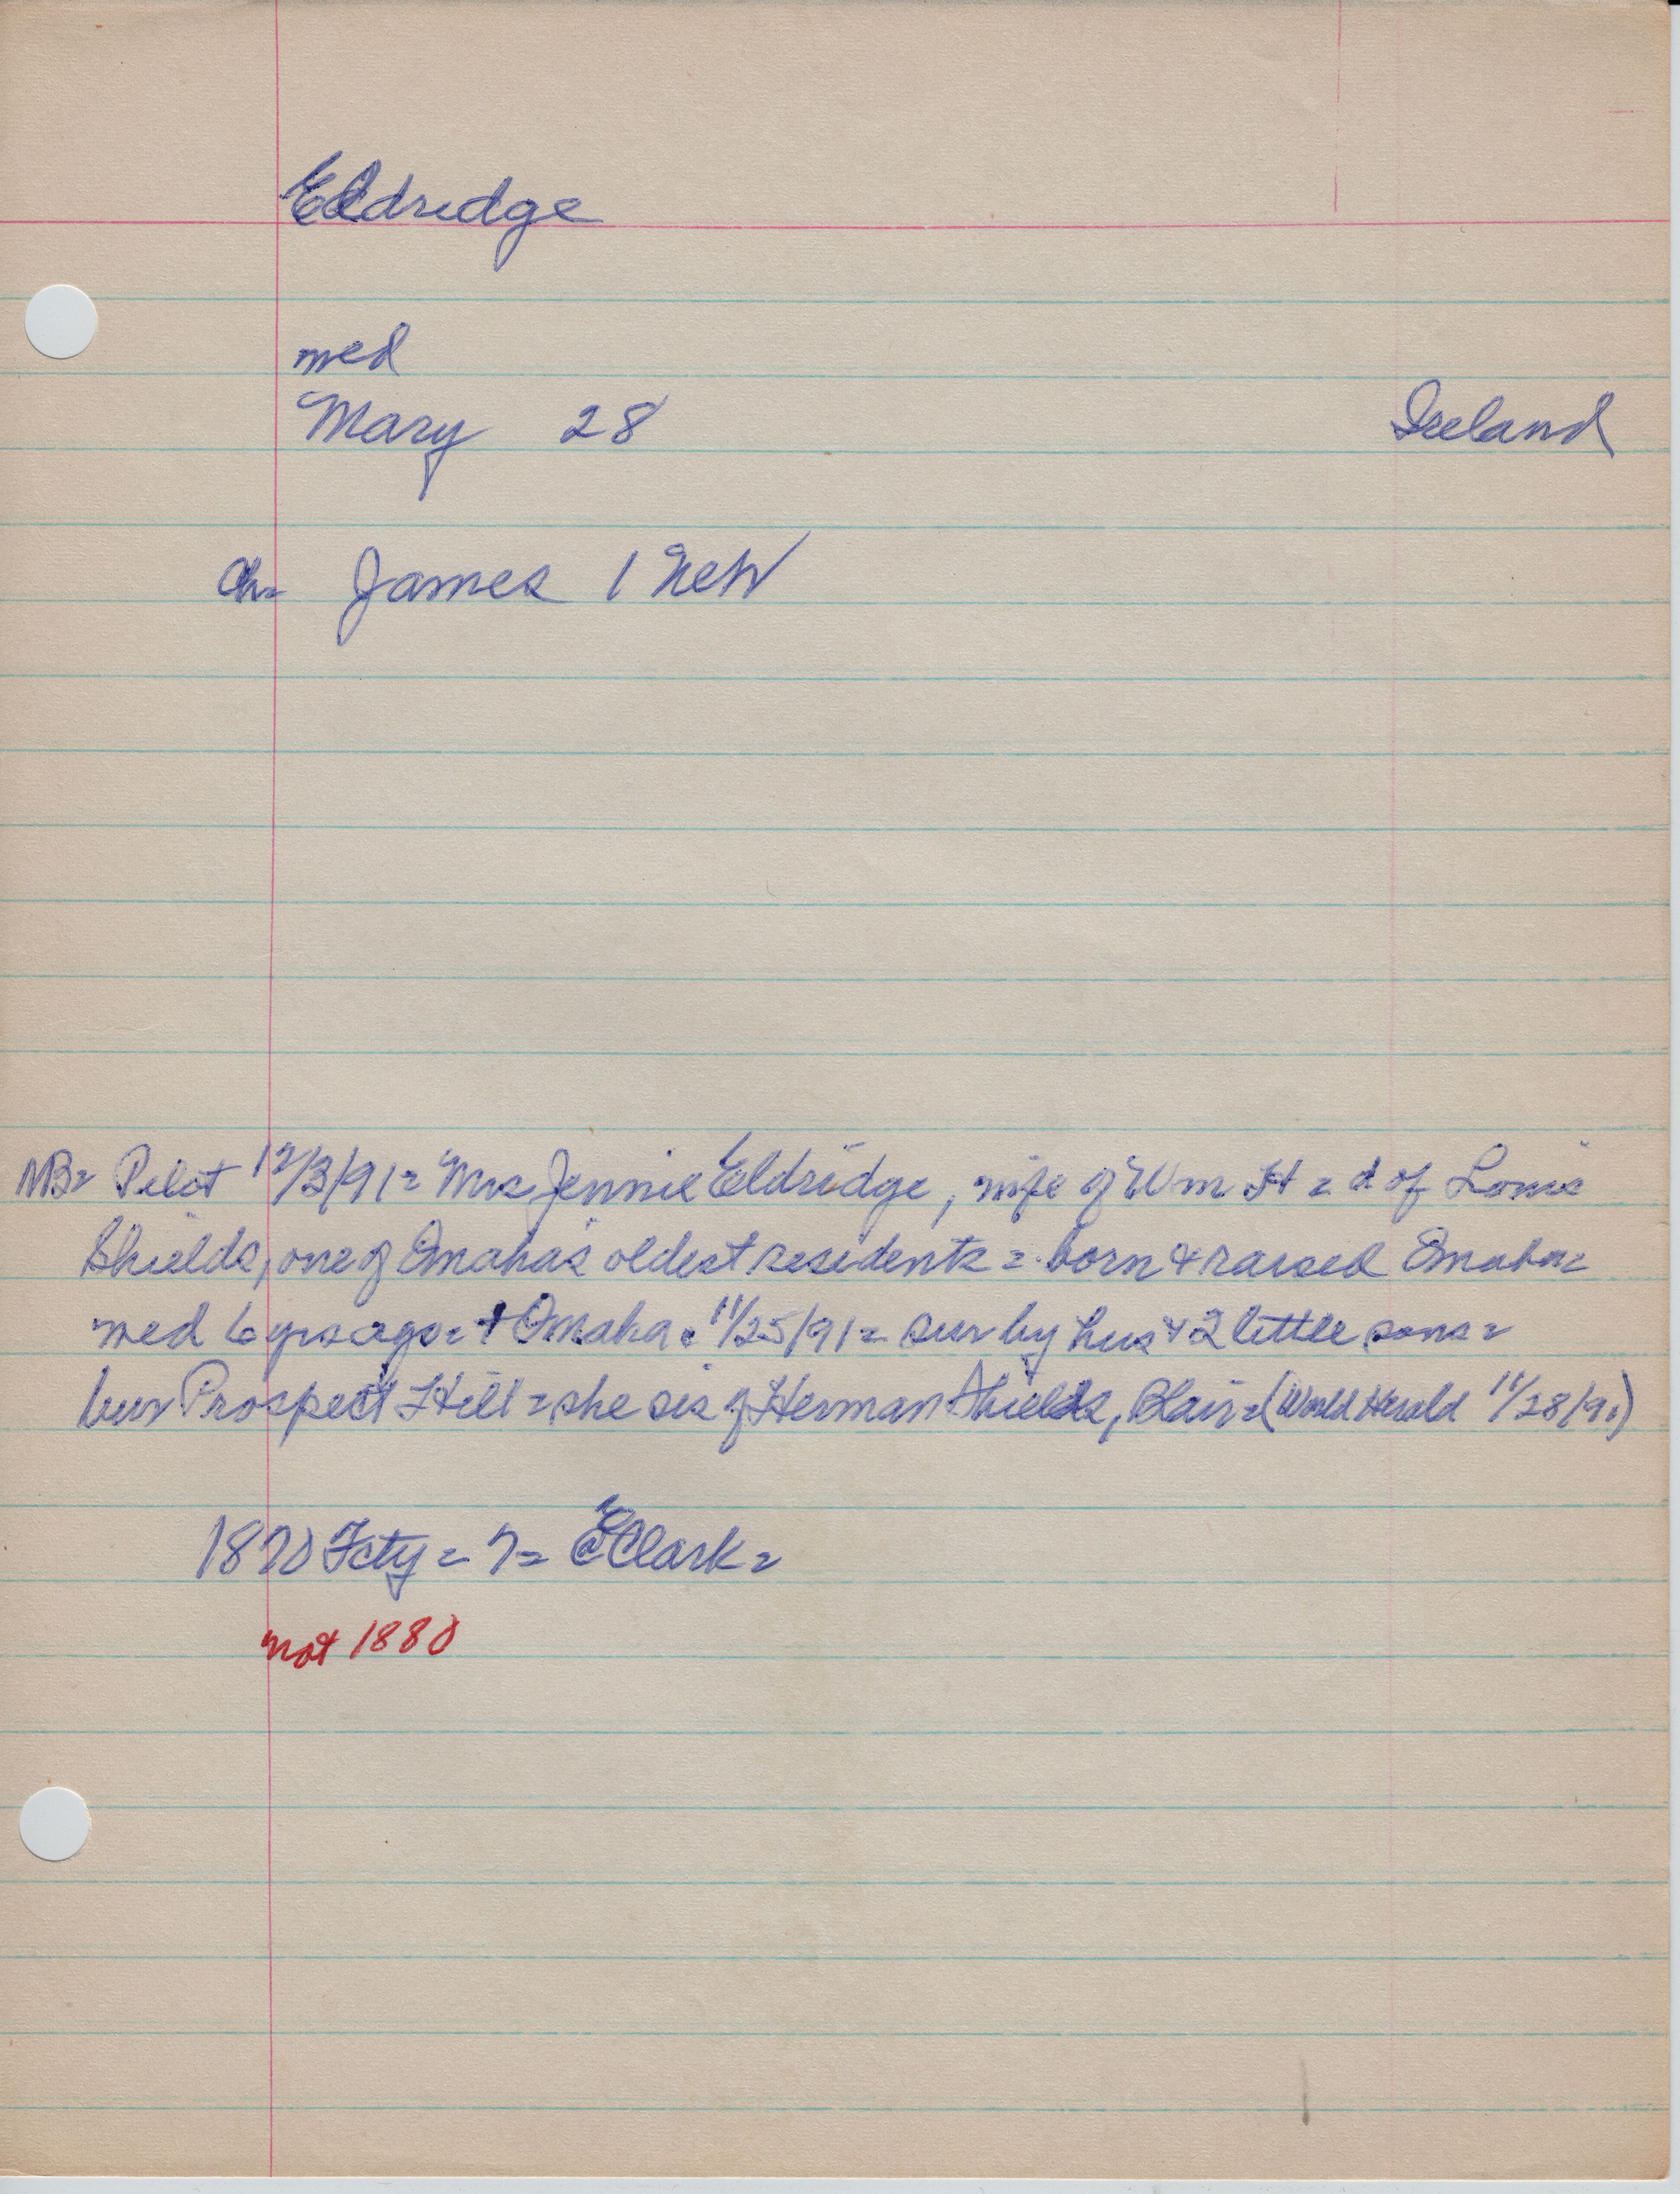 Eldridge
med
Mary 28 Ireland
ch= James 1 Neb
NB= Pilot 12/3/91= Mrs Jennie Eldridge, wife of Wm H = d of Louis
Shields, one of Omaha's oldest residents = born & raised Omaha=
med 6 yrs ago= + Omaha = 11/25/91= sur by hus & 2 little sons=
bur Prospect Hill = she sis of Herman Shields, Blair= (World Herald 11/28/91)
1870 Fcty = 7= E Clark=
not 1880